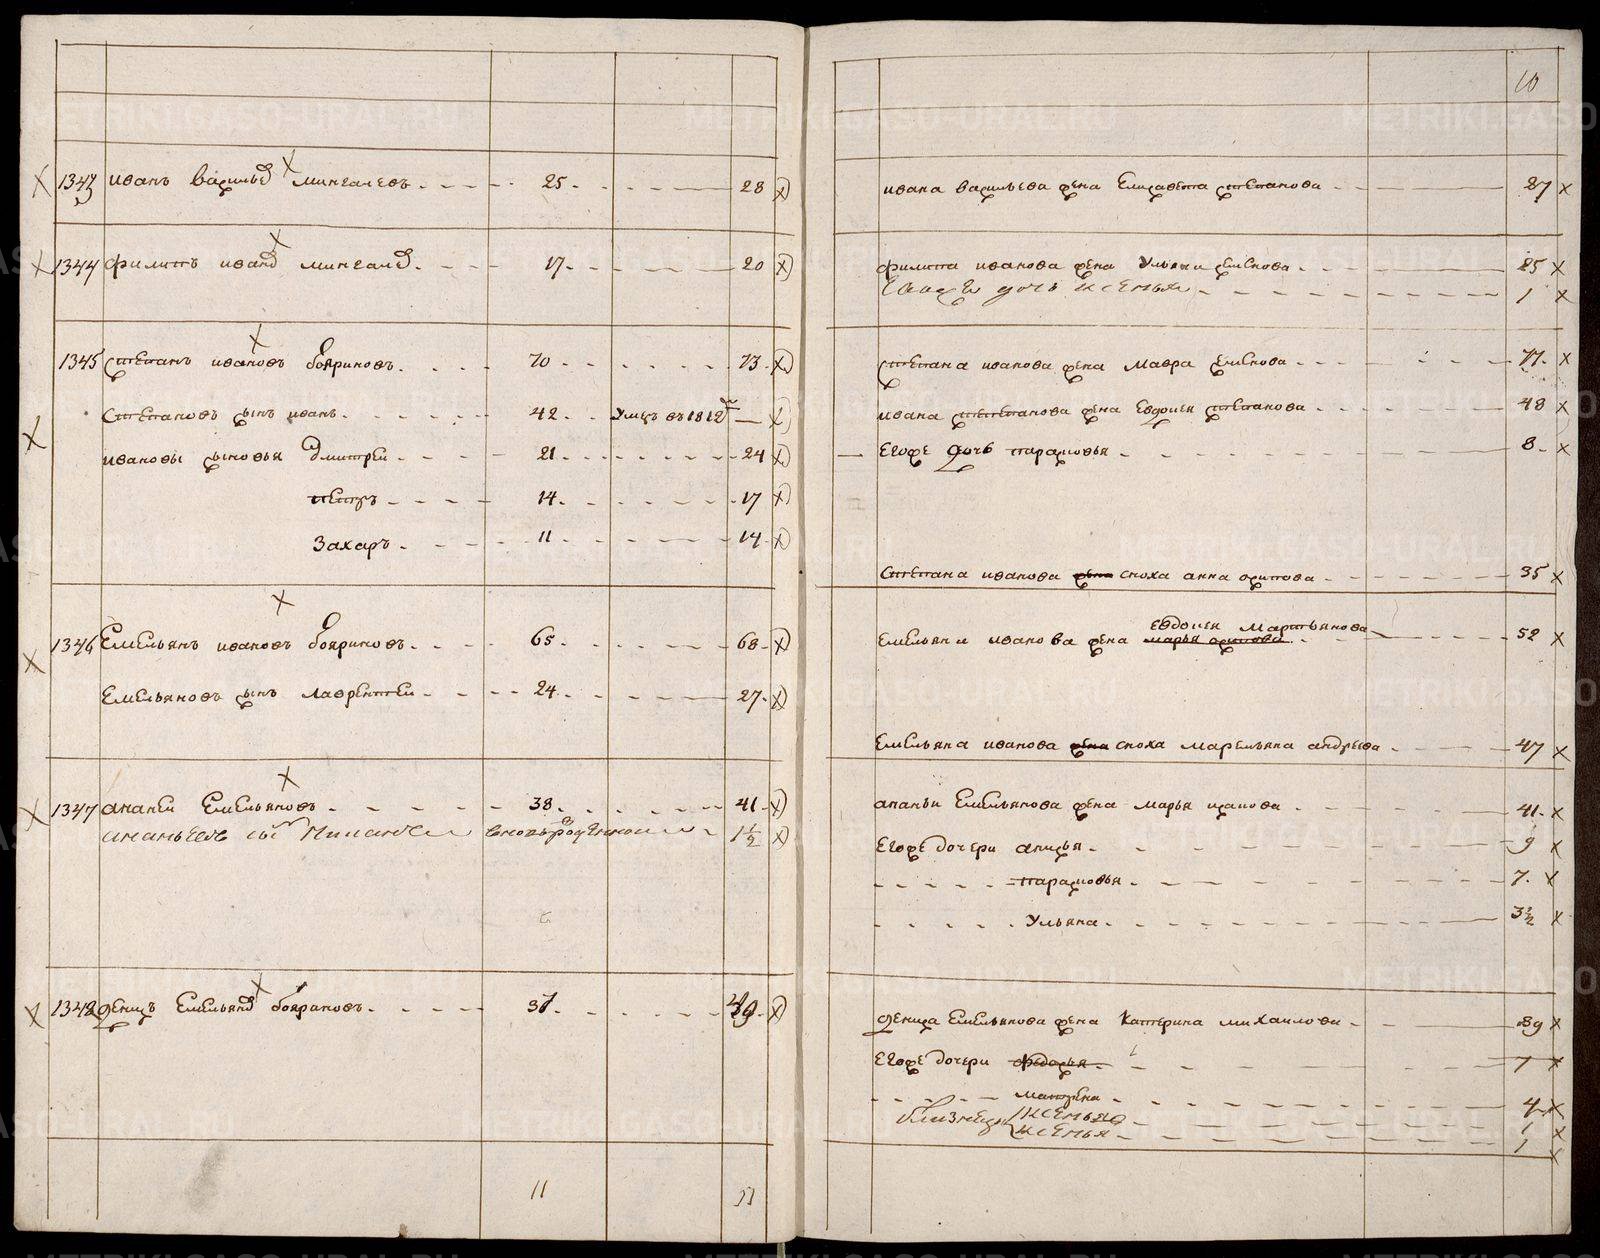 10
1343 иванъ васильев мингалевъ 25 28
1344 филипъ иванов мингалев 17 20
1345 степанъ ивановъ бояриновъ 70 73
степановъ сынъ иванъ 42 умръ въ 1812м —
ивановы сыновья дмитреи 21 24
петръ 14 17
захаръ 11 14
1346 Емельянъ ивановъ бояриновъ 65 68
Емельяновъ сынъ лаврентеи 24 27
1347 ананеи Емельяновъ 38 41
ананьевъ сынъ новорожденной 1½
1348 денисъ Емельянов бояриновъ 37
11 11
ивана васильева жена Елизавета степанова 27
филипа иванова жена Ульяна семенова 25
дочь ксенья 1
степана иванова жена мавра семенова 77
ивана степанова жена Евдокея степанова 48
Егоже дочь парасковья 8
степана иванова жена сноха анна осипова 35
Евдокея мартьянова
Емельяна иванова жена марья осипова 52
Емельяна иванова жена сноха маремьяна андреева 47
ананьи Емельянова жена марья исакова 41
Егоже дочери анисья 9
парасковья 7
Ульяна 3½
дениса Емельянова жена Катерина михаилова 39
Егоже дочери федосья 7
матрена 4
близнецы ксенья 1
ксенья 1